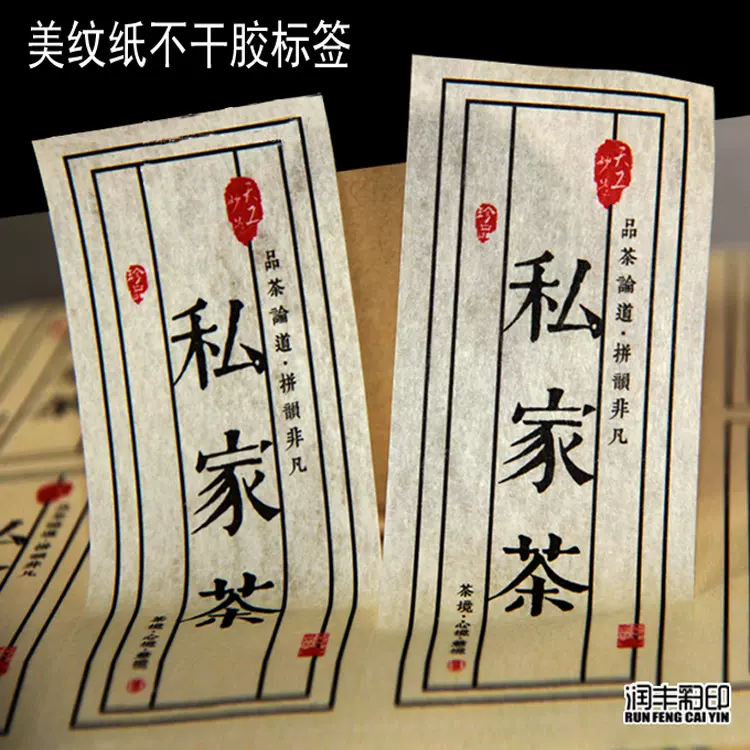 美纹纸不干胶标签
天工
珍品
品茶論道·拼韻非凡
私家茶
茶境·心境
天工
珍品
品茶論道·拼韻非凡
私家茶
茶境·心境
润丰彩印
RUN FENG CAI YIN